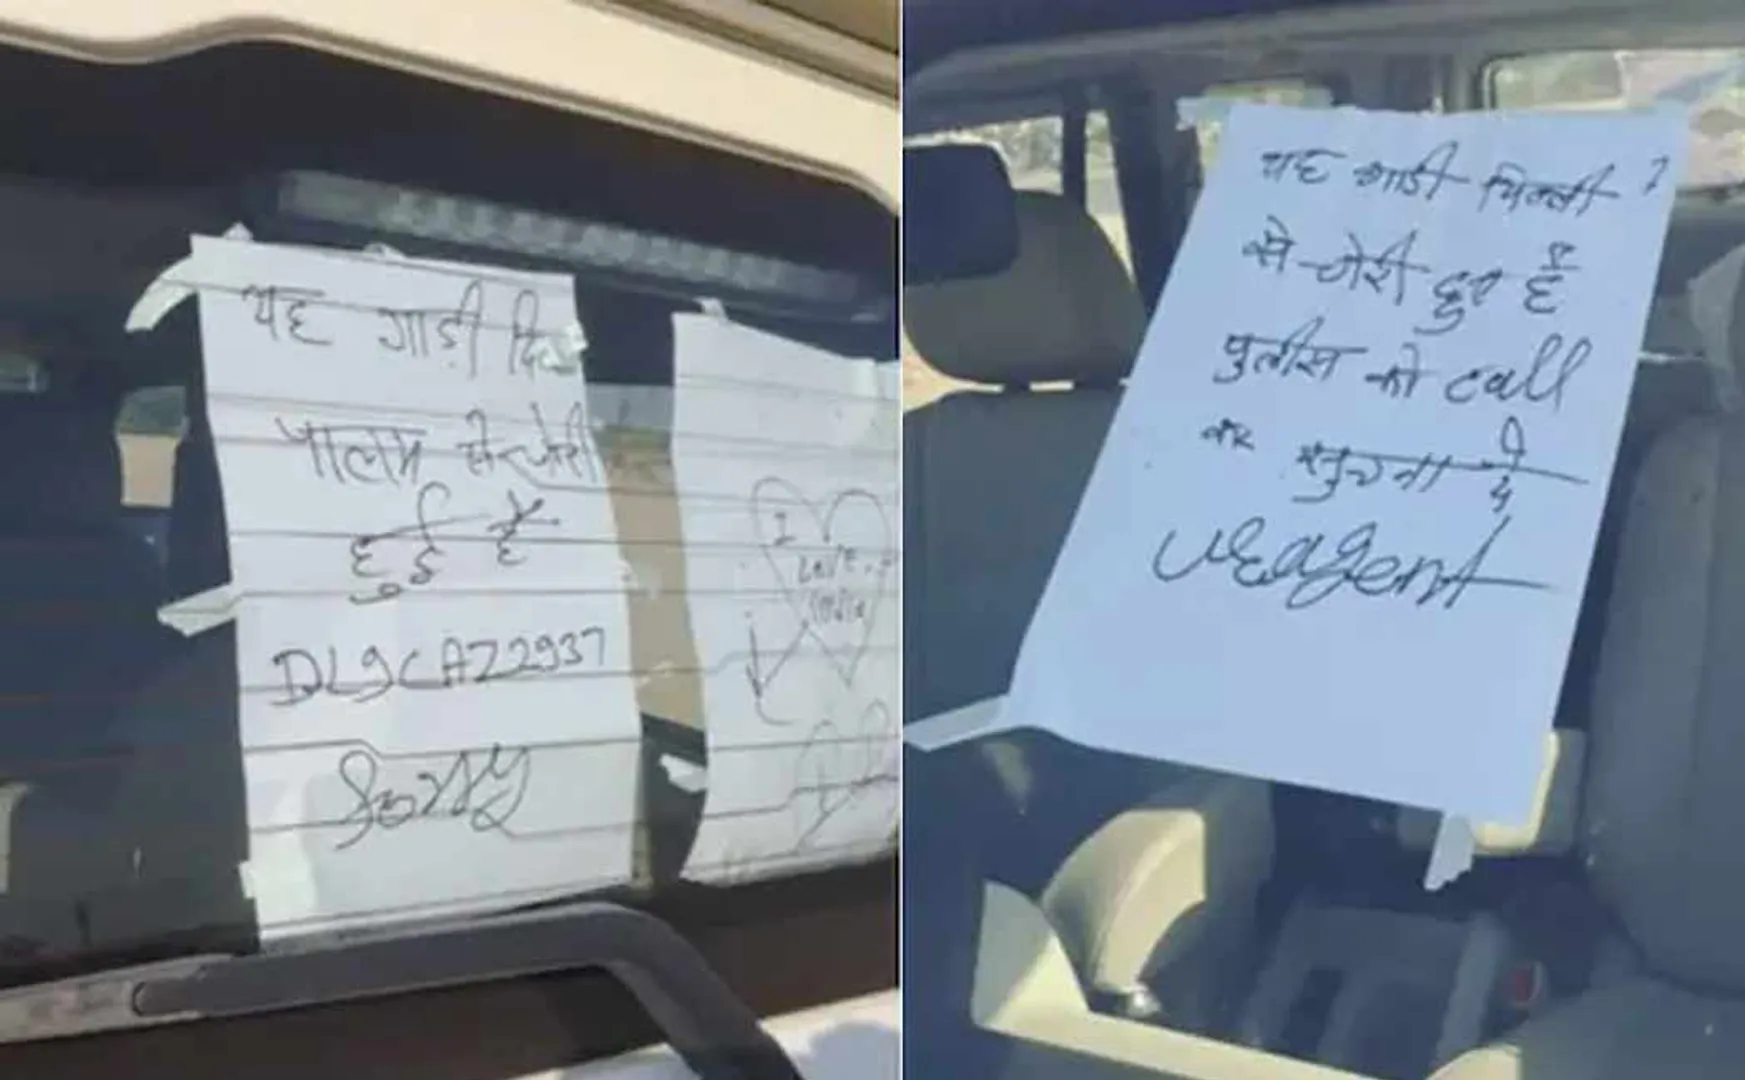 यह गाडी दिल्ली
पालम से चोरी
हुई है
DL9CAZ2937
Sorry
I
Love
India
यह गाडी दिल्ली
से चोरी हुए है
पुलीस को call
कर सुचना दे
Uregent